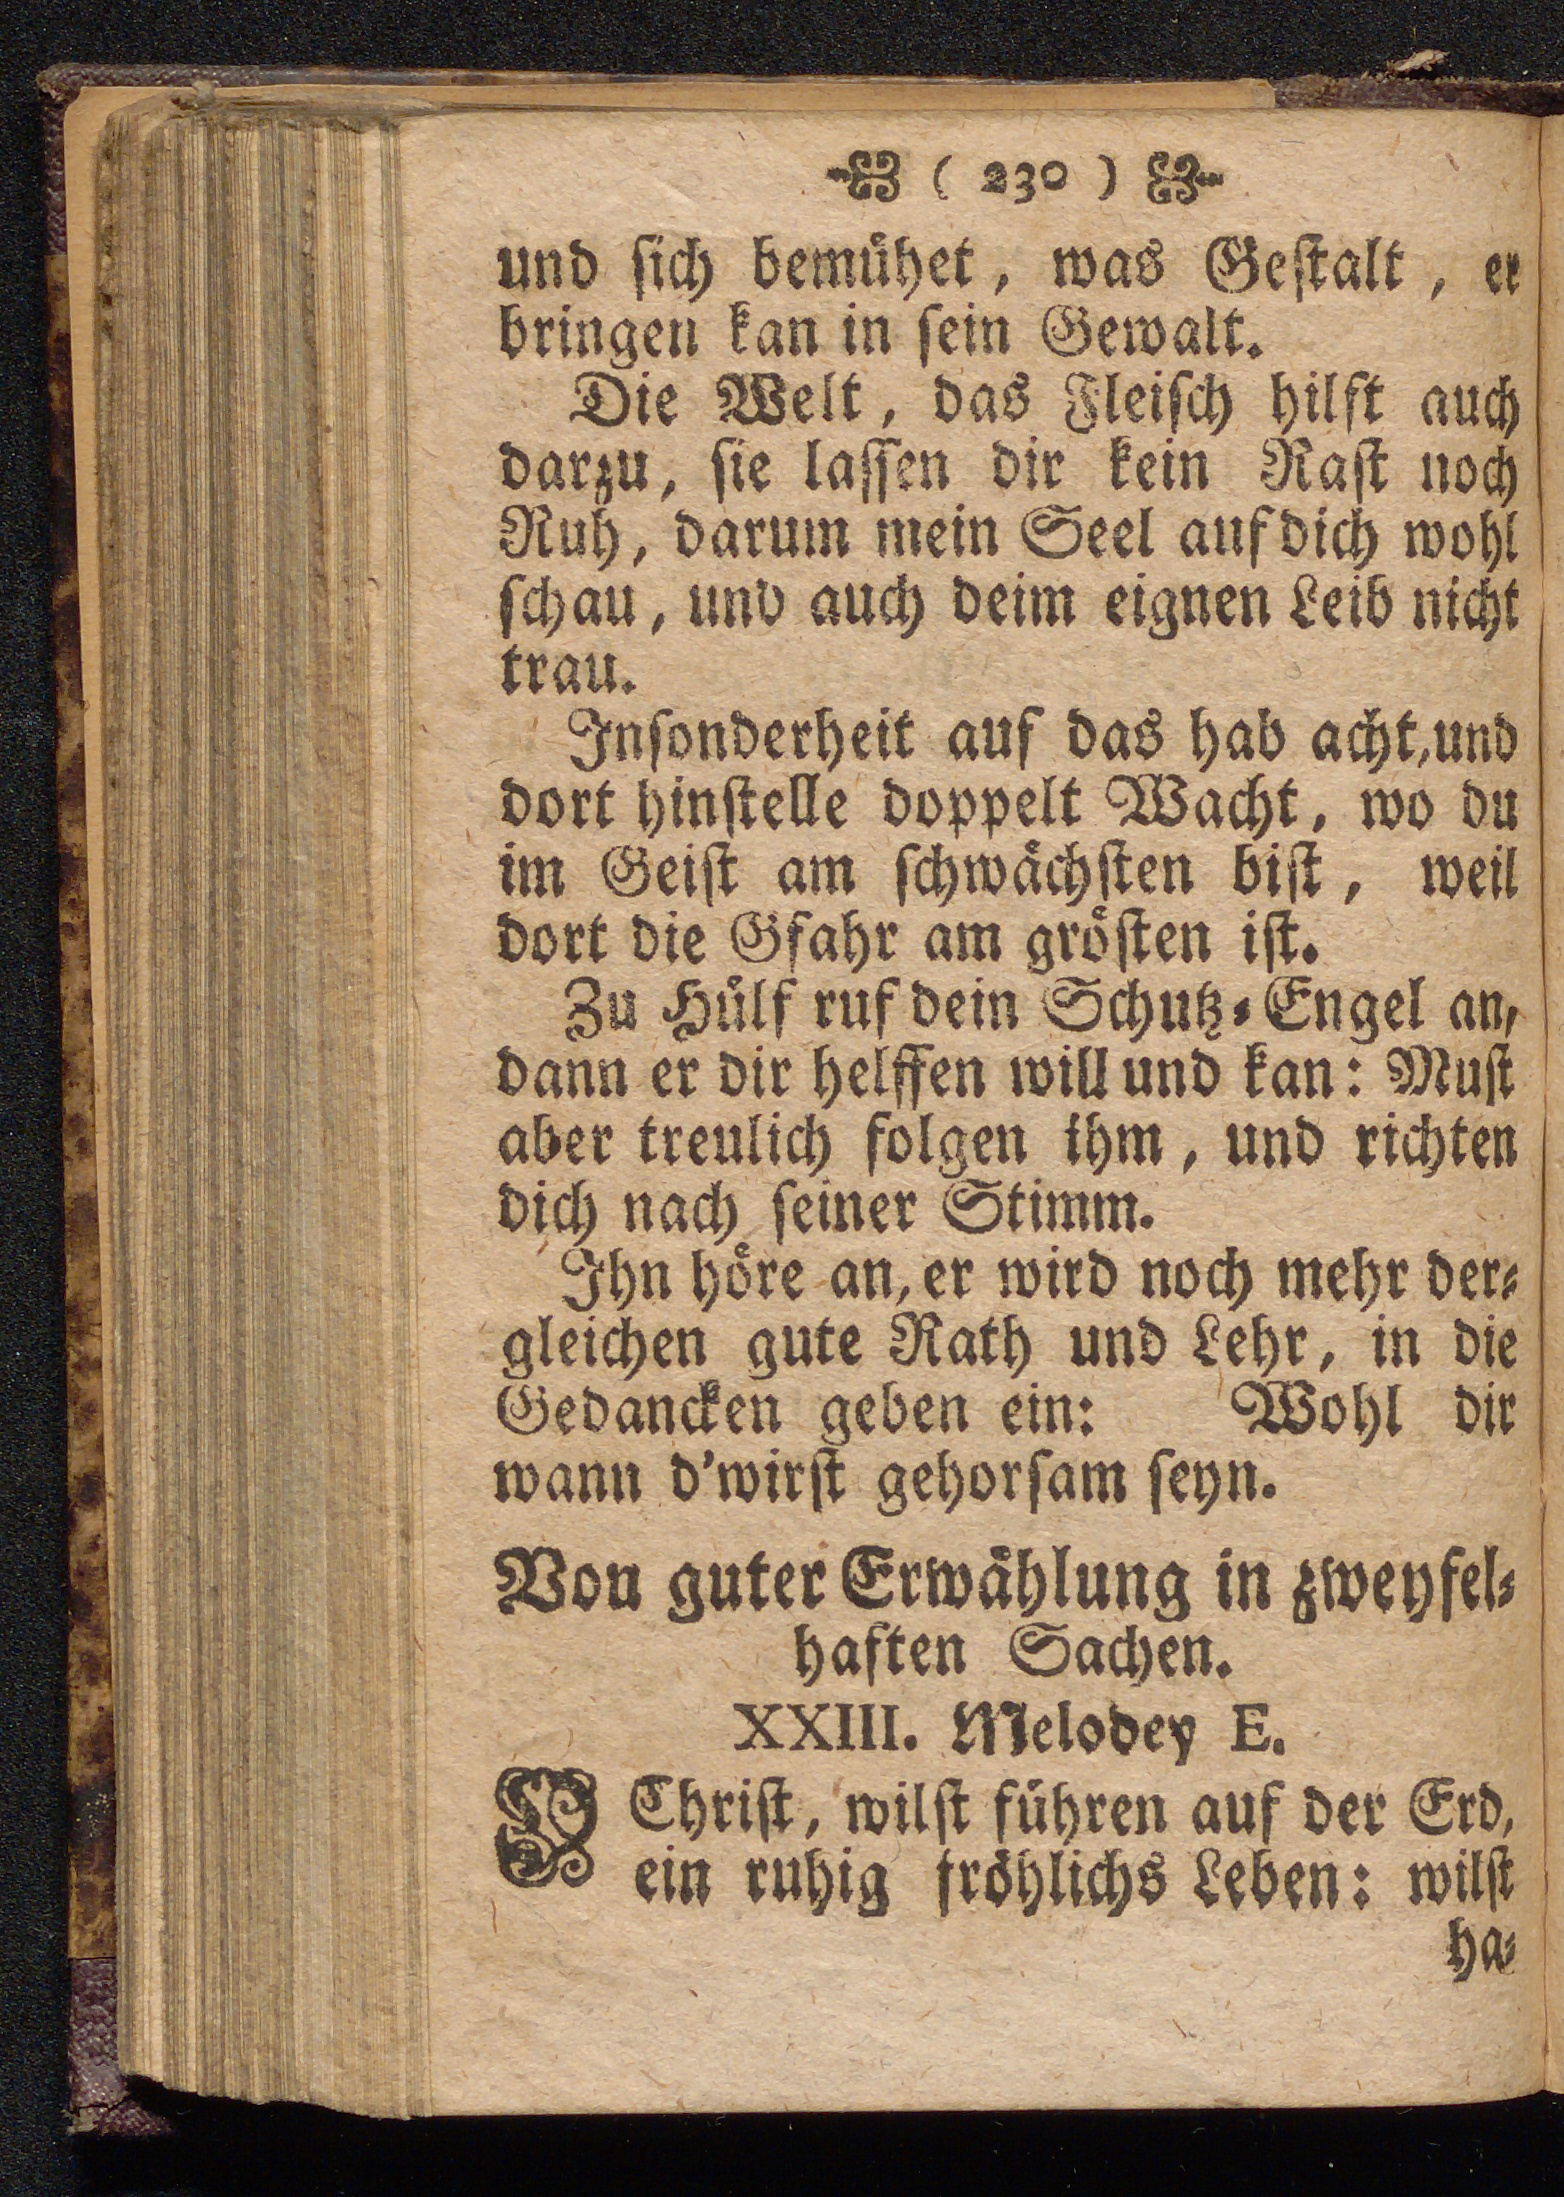 ( 230 )
und sich bemühet, was Gestalt, er
bringen kan in sein Gewalt.
Die Welt, das Fleisch hilft auch
darzu, sie lassen dir kein Rast noch
Ruh, darum mein Seel auf dich wohl
schau, und auch deim eignen Leib nicht
trau.
Insonderheit auf das hab acht, und
dort hinstelle doppelt Wacht, wo du
im Geist am schwächsten bist, weil
dort die Gfahr am grösten ist.
Zu Hülf ruf dein Schutz-Engel an,
dann er dir helffen will und kan: Must
aber treulich folgen ihm, und richten
dich nach seiner Stimm.
Ihn höre an, er wird noch mehr der-
gleichen gute Rath und Lehr, in die
Gedancken geben ein: Wohl dir
wann d'wirst gehorsam seyn.
Von guter Erwählung in zweyfel-
haften Sachen.
XXIII. Melodey E.
O Christ, wilst führen auf der Erd,
ein ruhig fröhlichs Leben: wilst
ha-